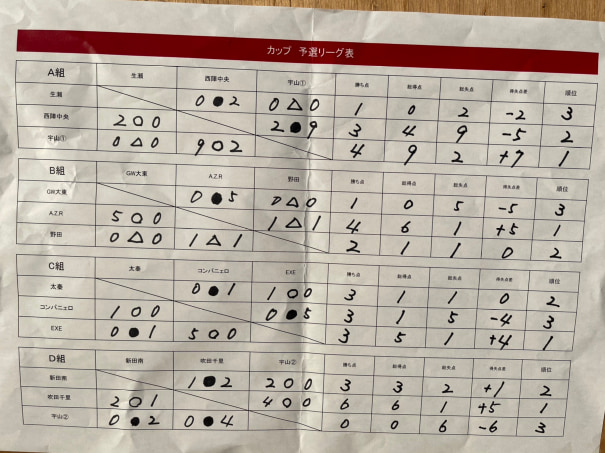 カップ 予選リーグ表
A組 生瀬 西陣中央 宇山① 勝ち点 総得点 総失点 得失点差 順位
生瀬 0 ● 2 0 △ 0 1 0 2 -2 3
西陣中央 2 ○ 0 2 ● 9 3 4 9 -5 2
宇山① 0 △ 0 9 ○ 2 4 9 2 +7 1
B組 GW大東 A.Z.R 野田 勝ち点 総得点 総失点 得失点差 順位
GW大東 0 ● 5 0 △ 0 1 0 5 -5 3
A.Z.R 5 ○ 0 1 △ 1 4 6 1 +5 1
野田 0 △ 0 1 △ 1 2 1 1 0 2
C組 太秦 コンパニェロ EXE 勝ち点 総得点 総失点 得失点差 順位
太秦 0 ● 1 1 ○ 0 3 1 1 0 2
コンパニェロ 1 ○ 0 0 ● 5 3 1 5 -4 3
EXE 0 ● 1 5 ○ 0 3 5 1 +4 1
D組 新田南 吹田千里 宇山② 勝ち点 総得点 総失点 得失点差 順位
新田南 1 ● 2 2 ○ 0 3 3 2 +1 2
吹田千里 2 ○ 1 4 ○ 0 6 6 1 +5 1
宇山② 0 ● 2 0 ● 4 0 0 6 -6 3